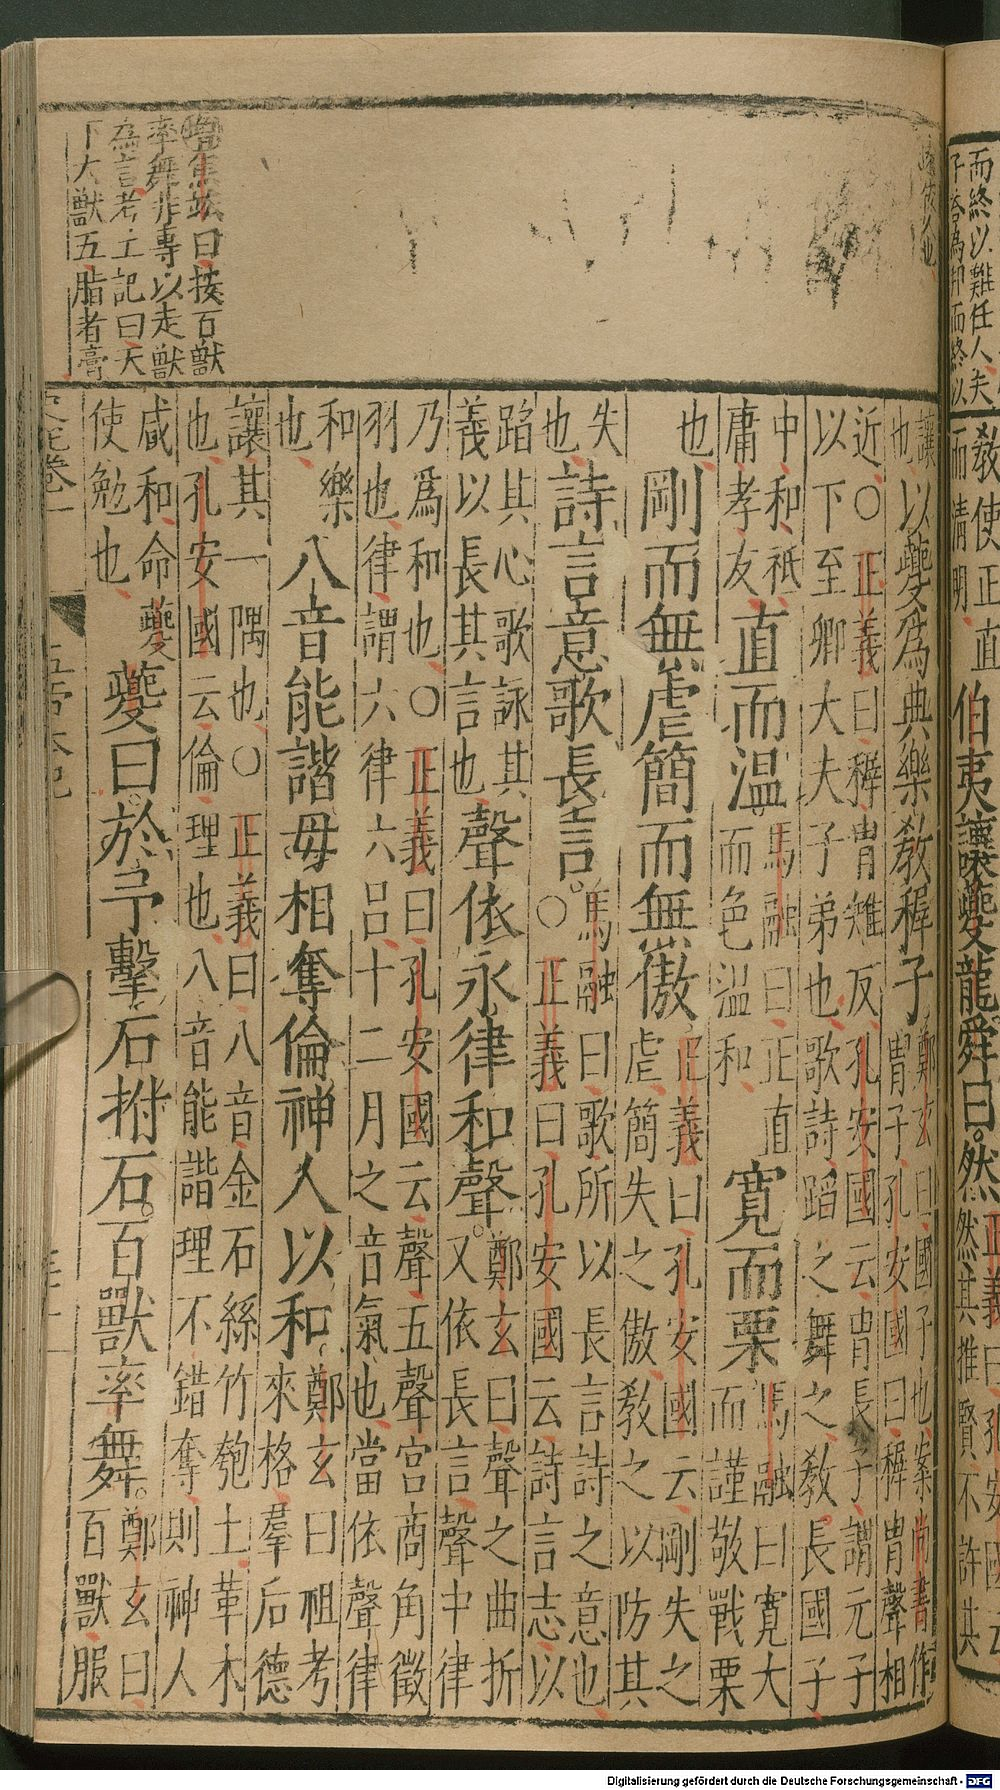 教使正直
而清明
伯夷讓夔龍舜曰。然
正義曰孔安國云
然其推賢不許其
讓
也
以夔為典樂教稺子
鄭玄曰國子也案尚書作
冑子孔安國曰稺冑聲相
近○正義曰稺冑雉反孔安國云冑長子謂元子
以下至卿大夫子弟也歌詩蹈之舞之教長國子
中和祗
庸孝友
直而温。
馬融曰正直
而色温和
寬而栗
馬融曰寬大
而謹敬戰栗
也
剛而無虐簡而無傲
正義曰孔安國云剛失之
虐簡失之傲教之以防其
失
也
詩言意歌長言。
馬融曰歌所以長言詩之意也
○正義曰孔安國云詩言志以
蹈其心歌詠其
義以長其言也
聲依永律和聲。
鄭玄曰聲之曲折
又依長言聲中律
乃爲和也○正義曰孔安國云聲五聲宮商角徵
羽也律謂六律六呂十二月之音氣也當依聲律
和樂
也
八音能諧毋相奪倫神人以和。
鄭玄曰祖考
來格羣后德
讓其一隅也○正義曰八音金石絲竹匏土革木
也孔安國云倫理也八音能諧理不錯奪則神人
咸和命夔
使勉也
夔曰。於予擊石拊石。百獸率舞。
鄭玄曰
百獸服
焦竑曰按百獸
率舞非專以走獸
為言考工記曰天
下大獸五脂者膏
Digitalisierung gefördert durch die Deutsche Forschungsgemeinschaft - DFG